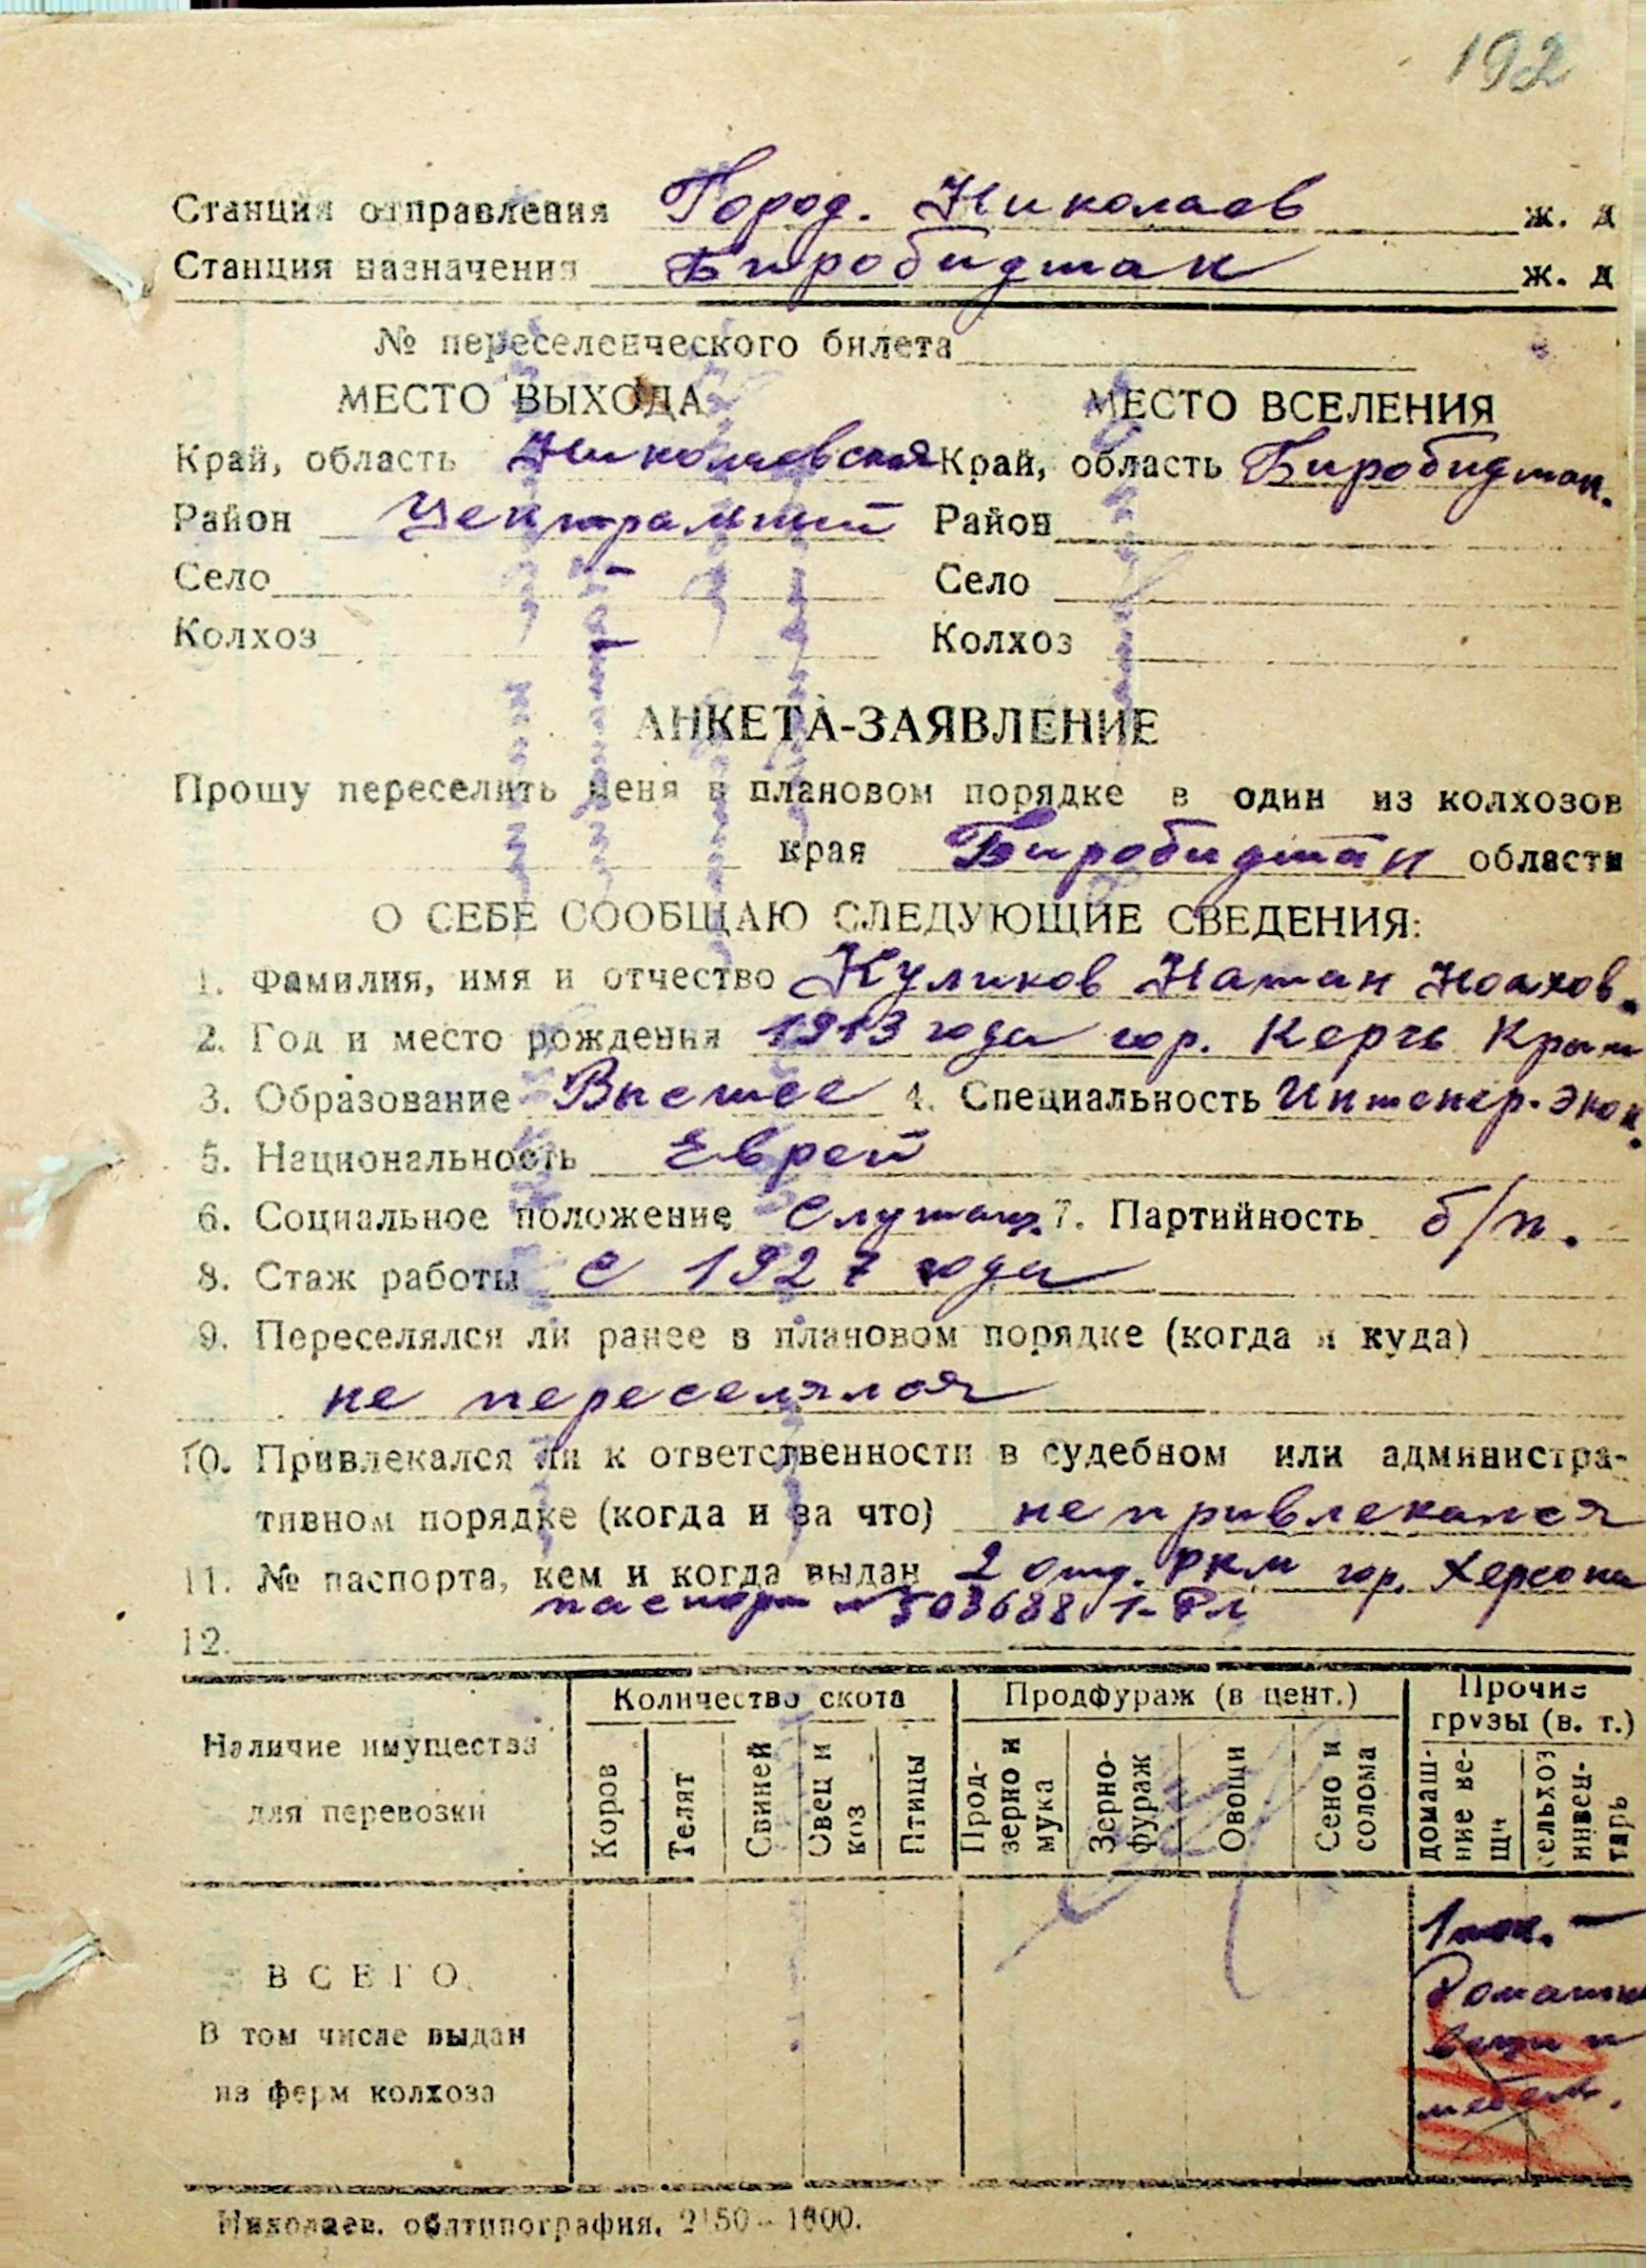 192
Станция отправления Город. Николаев ж. д
Станция назначения Биробиджан ж. д
№ переселенческого билета
МЕСТО ВЫХОДА МЕСТО ВСЕЛЕНИЯ
Край, область Николаевская Край, область Биробиджан.
Район Центральный Район
Село - Село
Колхоз - Колхоз
АНКЕТА-ЗАЯВЛЕНИЕ
Прошу переселить меня в плановом порядке в один из колхозов
края Биробиджан области
О СЕБЕ СООБЩАЮ СЛЕДУЮЩИЕ СВЕДЕНИЯ:
1. Фамилия, имя и отчество Куликов Натан Ноахов.
2. Год и место рождения 1913 года гор. Керчь Крым
3. Образование Высшее 4. Специальность Инженер-экон.
5. Национальность Еврей
6. Социальное положение Служащ. 7. Партийность б/п.
8. Стаж работы с 1927 года
9. Переселялся ли ранее в плановом порядке (когда и куда)
не переселялся
10. Привлекался ли к ответственности в судебном или администра-
тивном порядке (когда и за что) не привлекался
11. № паспорта, кем и когда выдан 2 отд. РКМ гор. Херсона
паспорт № 503688 1-
12.
Наличие имущества для перевозки
Количество скота
Коров
Телят
Свиней
Овец и коз
Птицы
Продфураж (в цент.)
Прод-зерно и мука
Зерно-фураж
Овощи
Сено и солома
Прочие грузы (в. т.)
домаш-ние ве-щи
сельхоз инвен-тарь
ВСЕГО
В том числе выдан
из ферм колхоза
1 тон. -
Домашние
вещи и
мебель.
Николаев. облтипография. 2150-1800.